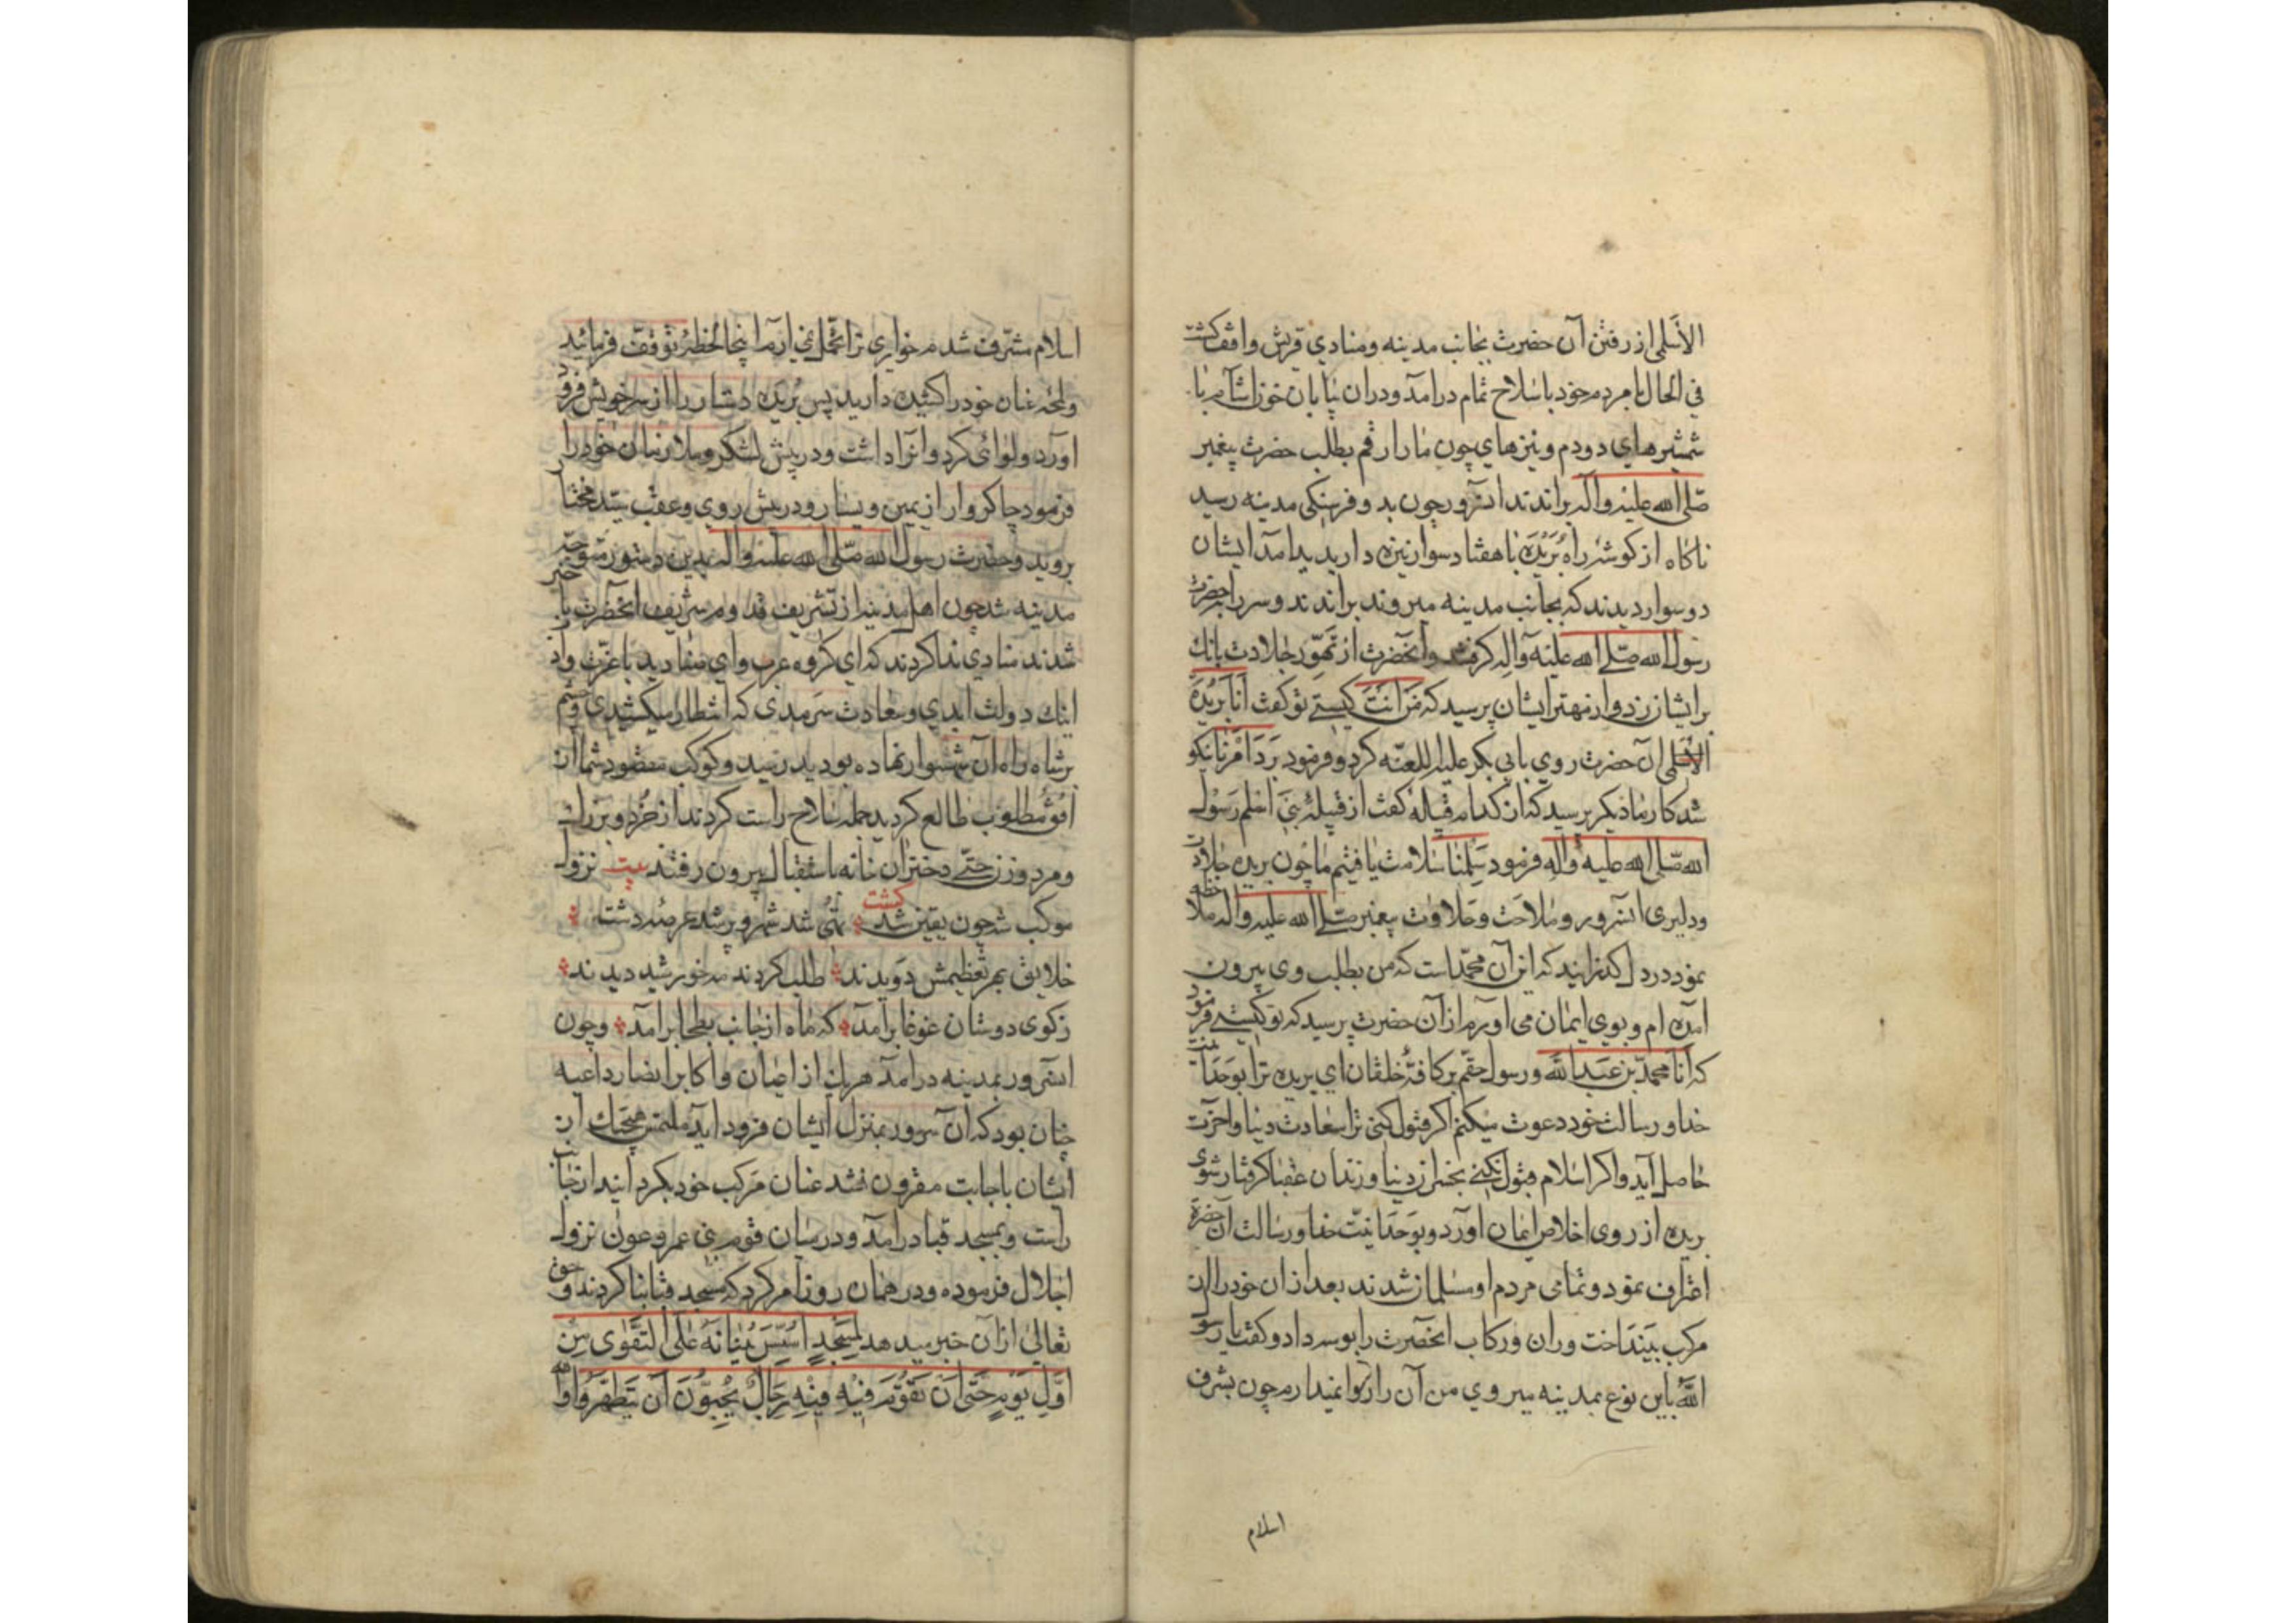 الأسلمی از رفتن آن حضرت بجانب مدینه و منادي قریش واقف کشت
في الحال با مردم خود با سلاح تمام درامد و دران بیابان خون اشام با
شمشیرهاي دودم و نیزهاي چون مار ارقم بطلب حضرت پیغمبر
صلی الله علیه واله براندند انسرور چون بدو فرسنکی مدینه رسید
ناکاه از کوشه راه بُرَیْدَه با هفتاد سوار نیزه دار پدید امد ایشان
دو سوار دیدند که بجانب مدینه میروند براندند و سر راه حضرت
رسول الله صلی الله علیه وآله کرفتند وآنحضرت از تهوّر جلادت بانك
بر ایشان زد و از مهتر ایشان پرسید که مَن اَنْتَ کیستے تو کفت اَنَا بُرَیْدَة
الاسلمی آن حضرت روي بابی بکر علیه اللعنه کرد و فرمود بَرَدَ اَمْرُنَا نیکو
شد کار ما دیکر پرسید که از کدام قبیلهٔ کفت از قبیلهٔ بَنی اسلم رسول
الله صلی الله علیه واله فرمود سَلِمْنَا سلامت یافتیم ما چون بریده جلادت
ودلیری انسرور و ملاحت و حلاوت پیغمبر صلے الله علیه واله ملاحظه
نمود در دل کذرانید که این آن محمّد است که من بطلب وی بیرون
امده ام و بوي ایمان می آورم از آن حضرت پرسید که تو کیستے فرمود
که اَنَا محمّد بن عَبدِ الله و رسول حقم بر کافهٔ خلقان اي بریده ترا بوحدانیت
خدا و رسالت خود دعوت میکنم اکر قبول کنی ترا سعادت دنیا و اخرت
حاصل آید و اکر اسلام قبول نکنے بخسران دنیا و زندان عقبا کرفتار شوی
بریده از روی اخلاص ایمان اورد و بوَحدانیّت خدا و رسالت آن حضرة
اعتراف نمود و تمامی مردم او مسلمان شدند بعد از ان خود را از
مرکب بینداخت و ران و رکاب انحضرت را بوسه داد و کفت یا رسول
اللّه باین نوع بمدینه میروي من آن را روا نمیدارم چون بشرف
اسلام
اسلام مشرّف شدم خواری ترا تحمل نمی ارم اینجا لحظهٔ توقف فرمائید
ولمحهٔ عنان خود را کشیده دارید پس بُرَیده دستار را از سر خویش فرود
اورد و لوائی کرد وانرا داشت و در پیش لشکر و ملازمان خود را
فرمود چاکروار از یمین و یسار و در پیش روي و عقب سیّد مختار
بروید و حضرت رسول الله صلّی الله علیه واله بدین دستور متوجه
مدینه شد چون اهل مدینه از تشریف قدوم شریف انحضرت با خبر
شدند منادي ندا کردند که اي کروه عرب و اي صنادید باعزّت و ادب
اینك دولت ابدي و سعادت سَرمدی که انتظار میکشیدي و چشم
بر شاه راه آن شهسوار نهاده بودید رسید و کوکب مقصود شما از
افق مطلوب طالع کردید جمله سلاح راست کردند از خُرد و بزرك
و مرد و زن حتّی دختران خانه باستقبال بیرون رفتند بیت نزول
موکب شه چون یقین شد کشت تهی شد شهر و پر شد عرصه دشت
خلایق بهر تعظیمش دَویدند طلب کردند مه خورشید دیدند
زکوی دوستان غوغا برامد که ماه از جانب بطحا برامد و چون
انسرور بمدینه درامد هریك از اعیان و اکابر انصار داعیه
چنان بود که آن سرور بمنزل ایشان فرود آید ملتمس هیچیك از
ایشان باجابت مقرون نشد عنان مَرکب خود بکردانید از جانب
راست و بمسجد قبا درامد و در میان قوم بنی عمرو عون نزول
اجلال فرموده و در همان روز امر کرد که مسجد قبا بنا کردند و حق
تعالی از آن خبر میدهد لَمَسْجِدٍ اُسِّسَ بُنیَانَهُ عَلَی التَّقْوٰی مِنْ
اَوَّلِ یَوْمٍ حَتّی اَنْ تَقُوْمَ فِیْهِ فِیْهِ رِجَالٌ یُحِبُّوْنَ اَن یَتَطَهَّرُوا والله